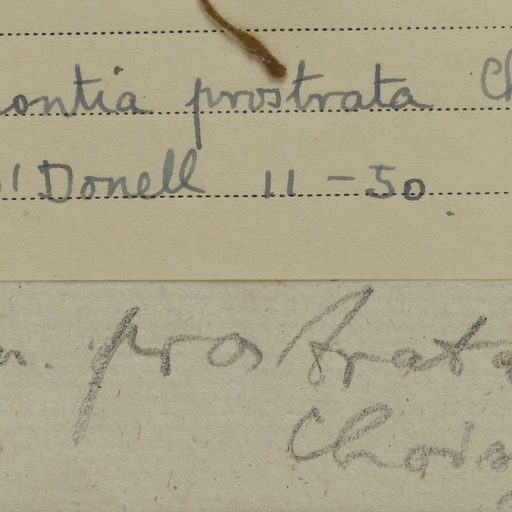 ontia prostrata Ch
O'Donell 11-50
n. prostrata
Chois